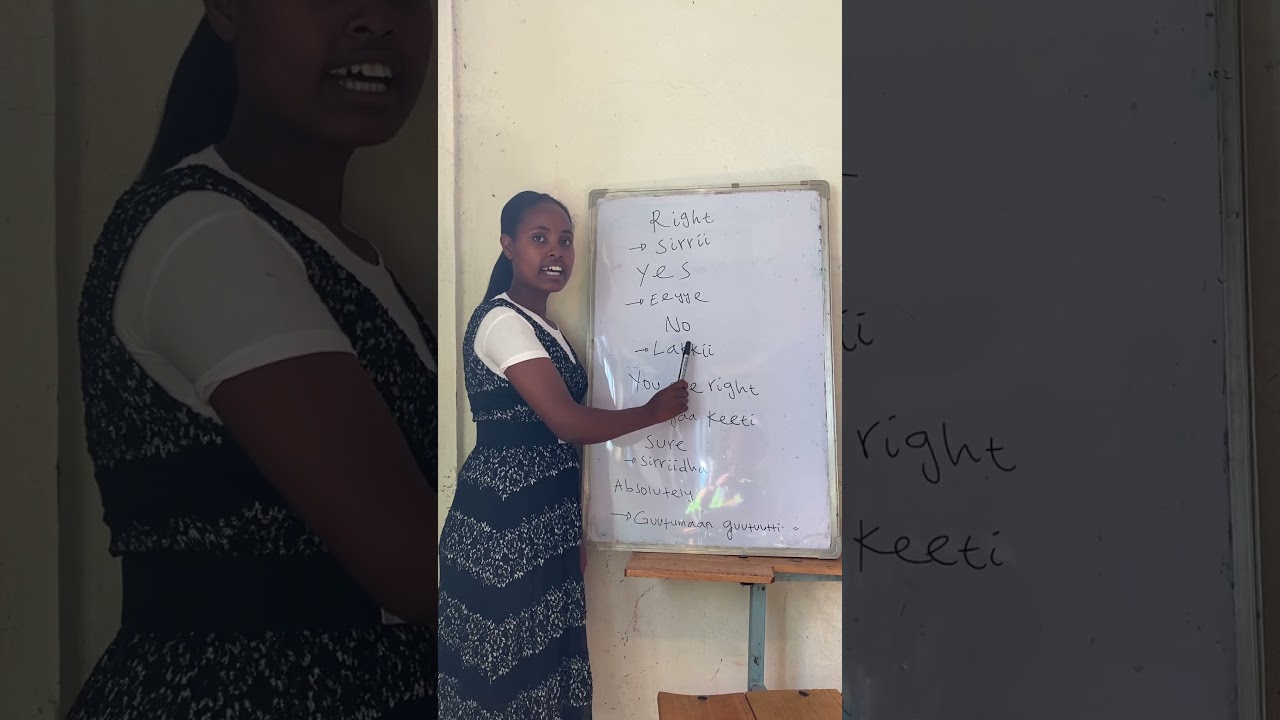 Right
→ Sirrii
Yes
→ Eeyye
No
→ Lakkii
You are right
Keeti
Sure
→ Sirriidha
Absolutely
→ Guutumaan guutuutti